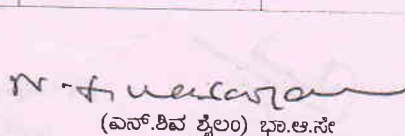 (ಎನ್.ಶಿವ ಶೈಲಂ) ಭಾ.ಆ.ಸೇ